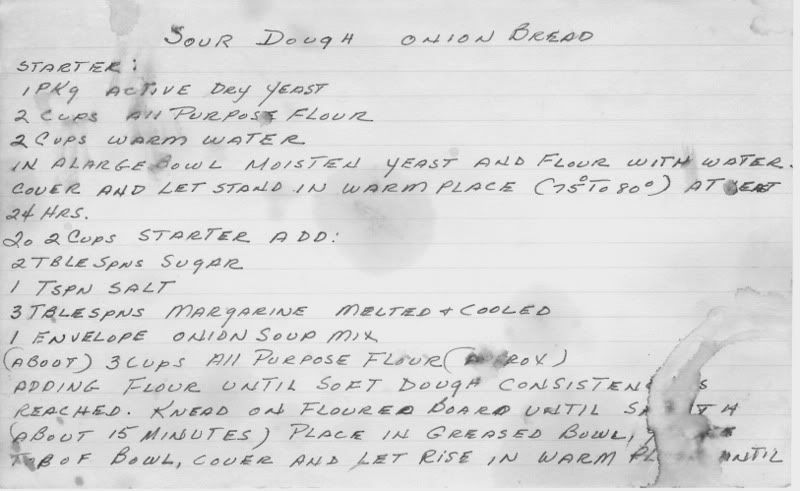 SOUR DOUGH ONION BREAD
STARTER:
1 PKg ACTIVE DRY YEAST
2 CUPS All PURPOSE FLOUR
2 CUPS WARM WATER
IN A LARGE BOWL MOISTEN YEAST AND FLOUR WITH WATER.
COVER AND LET STAND IN WARM PLACE (75° TO 80°) AT
24 HRS.
2 CUPS STARTER ADD:
2 TBLESPNS SUGAR
1 TSPN SALT
3 TBLESPNS MARGARINE MELTED & COOLED
1 ENVELOPE ONION SOUP MIX
(ABOUT) 3 CUPS All PURPOSE FLOUR
ADDING FLOUR UNTIL SOFT DOUGH
REACHED. KNEAD ON FLOURED BOARD UNTIL
(ABOUT 15 MINUTES) PLACE IN GREASED BOWL,
OF BOWL, COVER AND LET RISE IN WARM UNTIL